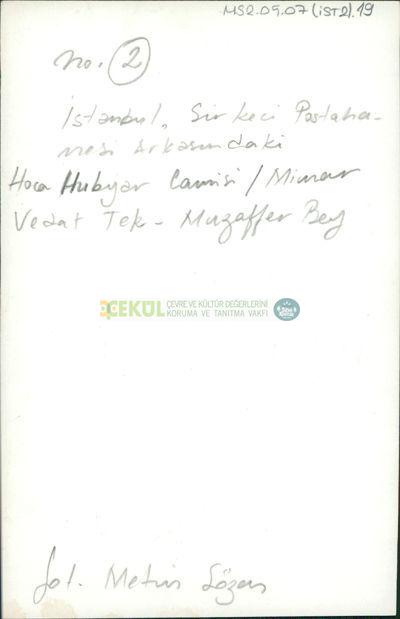 MS2.09.07 (İST2).19
no. 2
İstanbul, Sirkeci Postaha-
nesi Arkasındaki
Hoca Hubyar Camisi / Mimar
Vedat Tek - Muzaffer Bey
ÇEKÜL ÇEVRE VE KÜLTÜR DEĞERLERİNİ
KORUMA VE TANITMA VAKFI
fot. Metin Sözen